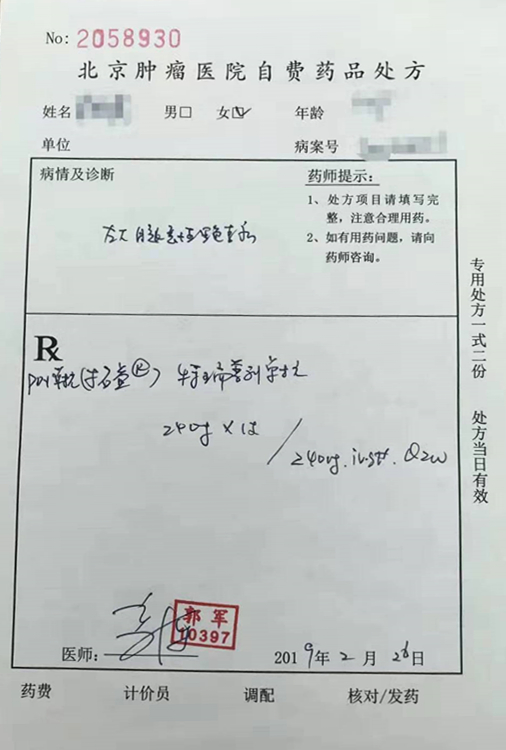 No: 2058930
北京肿瘤医院自费药品处方
姓名 男□ 女☑ 年龄
单位 病案号
病情及诊断
药师提示:
1、处方项目请填写完
整，注意合理用药。
2、如有用药问题，请向
药师咨询。
恶性黑色素瘤
专用处方一式二份 处方当日有效
R
PD1单抗(拓益®) 特瑞普利单抗
240mg ×
240mg.iv.gtt.Q2w
郭军
10397
医师:
2019年2月26日
药费 计价员 调配 核对/发药